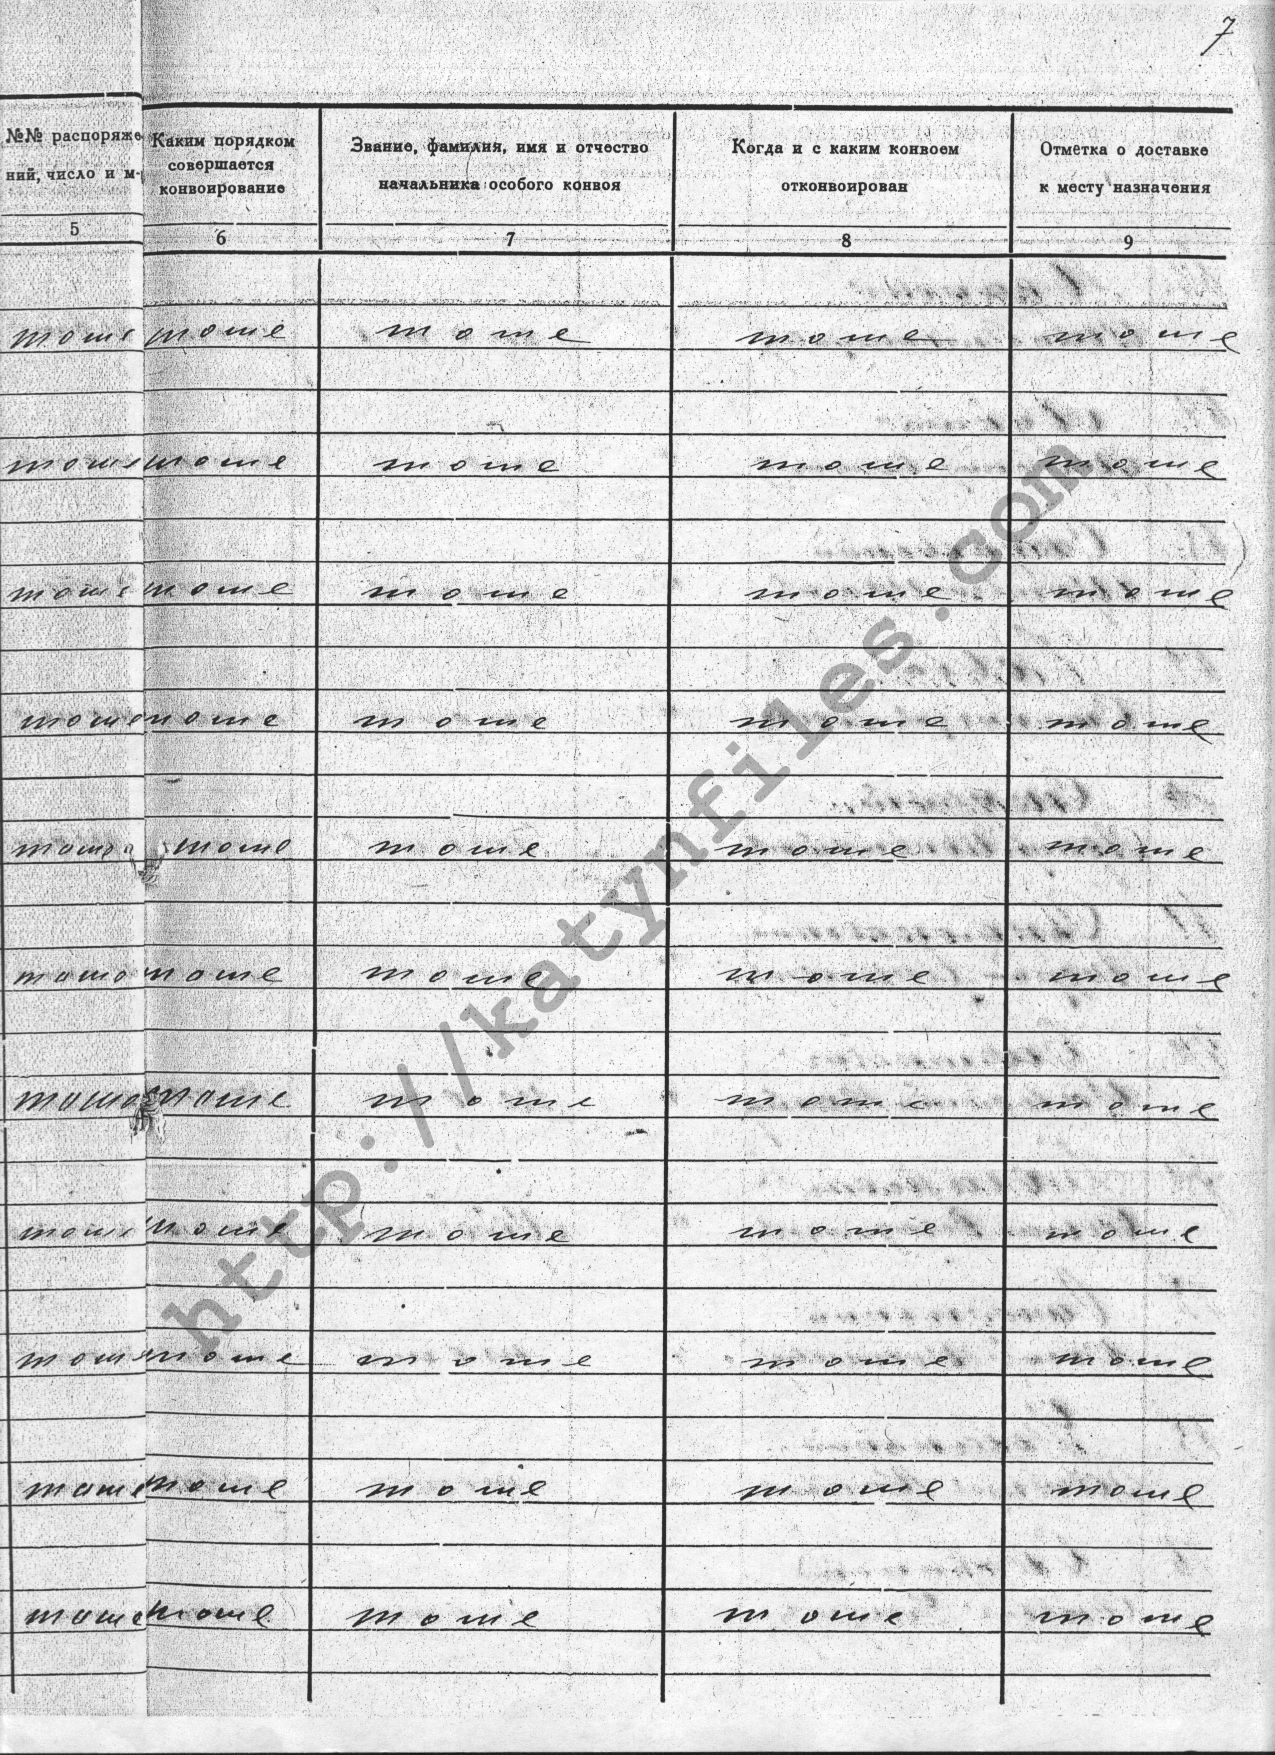 7
№№ распоряже- Каким порядком Звание, фамилия, имя и отчество Когда и с каким конвоем Отметка о доставке
ний, число и м- совершается конвоирование начальника особого конвоя отконвоирован к месту назначения
5 6 7 8 9
тоже тоже тоже тоже тоже
тоже тоже тоже тоже тоже
тоже тоже тоже тоже тоже
тоже тоже тоже тоже тоже
тоже тоже тоже тоже тоже
тоже тоже тоже тоже тоже
тоже тоже тоже тоже тоже
тоже тоже тоже тоже тоже
тоже тоже тоже тоже тоже
тоже тоже тоже тоже тоже
тоже тоже тоже тоже тоже
http://katynfiles.com